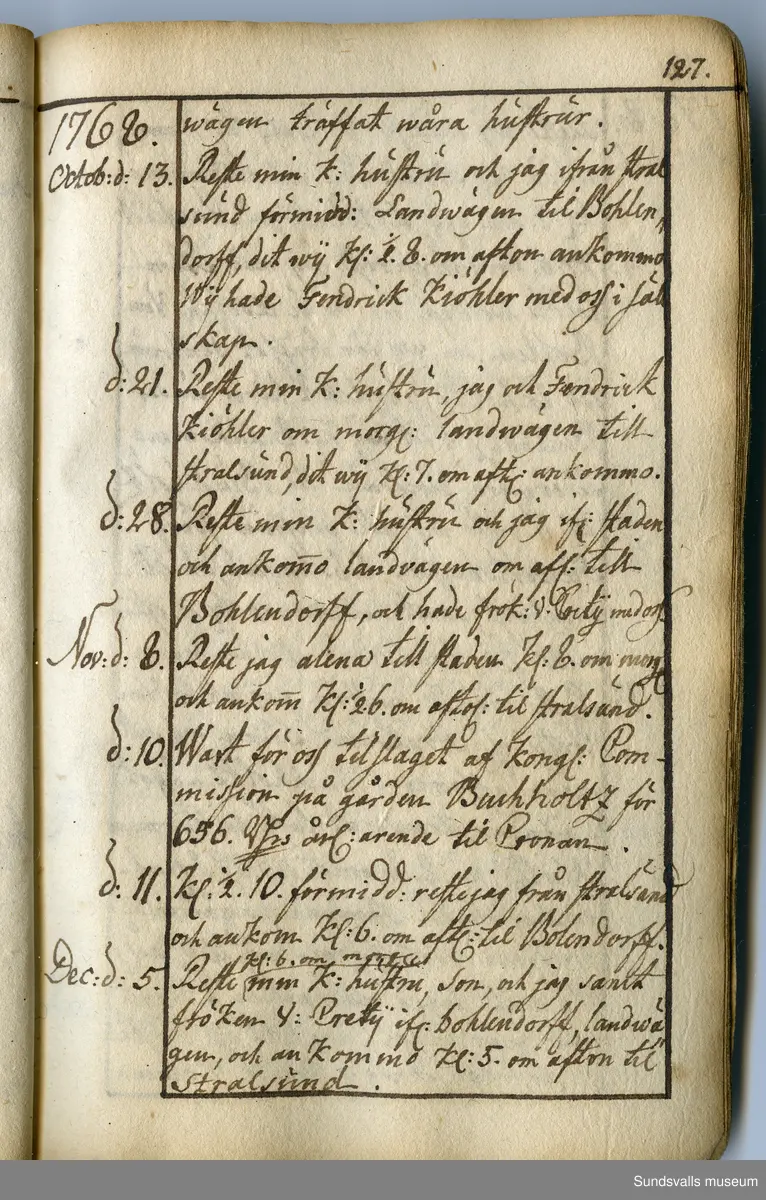 127.
1768. wägen träffat wåra hústrúr.
Octob: d: 13. Reste min K: hústrú och jag ifrån Stral
súnd förmidd: Landwägen til Bohlen,
dorff, dit wÿ Kl: ½. 8. om afton ankommo
Wÿ hade Fendrick Kiöhler med oss i säl
skap.
d: 21. Reste min K: hústrú, jag och Fendrick
Kiöhler om morg: landwägen till
Stralsúnd, dit wÿ Kl: 7. om aft: ankommo.
d: 28. Reste min K: hústrú och jag if: staden
och ankom̅o landvägen om aft: till
Bohlendorff, och hade frök: v: med oss
Nov: d: 8. Reste jag alena till staden Kl: 8. om morg:
och ankom̅ Kl: ½6. om afto: til Stralsúnd.
d: 10. Wart för oss tilslaget af Kongl: Com-
mission på gården Buchholtz för
656. årl: arende til Cronan.
d: 11. Kl: ½. 10. förmidd: reste jag från Stralsúnd
och ankom Kl: 6. om aft: til Bolendorff.
Kl: 6. om morgo
Dec: d: 5. Reste min K: hústru, son, och jag samt
fröken V: Pretÿ if: bohlendorff, landwä
gen, och ankommo Kl: 5. om afton til
Stralsúnd.
Sundsvalls museum